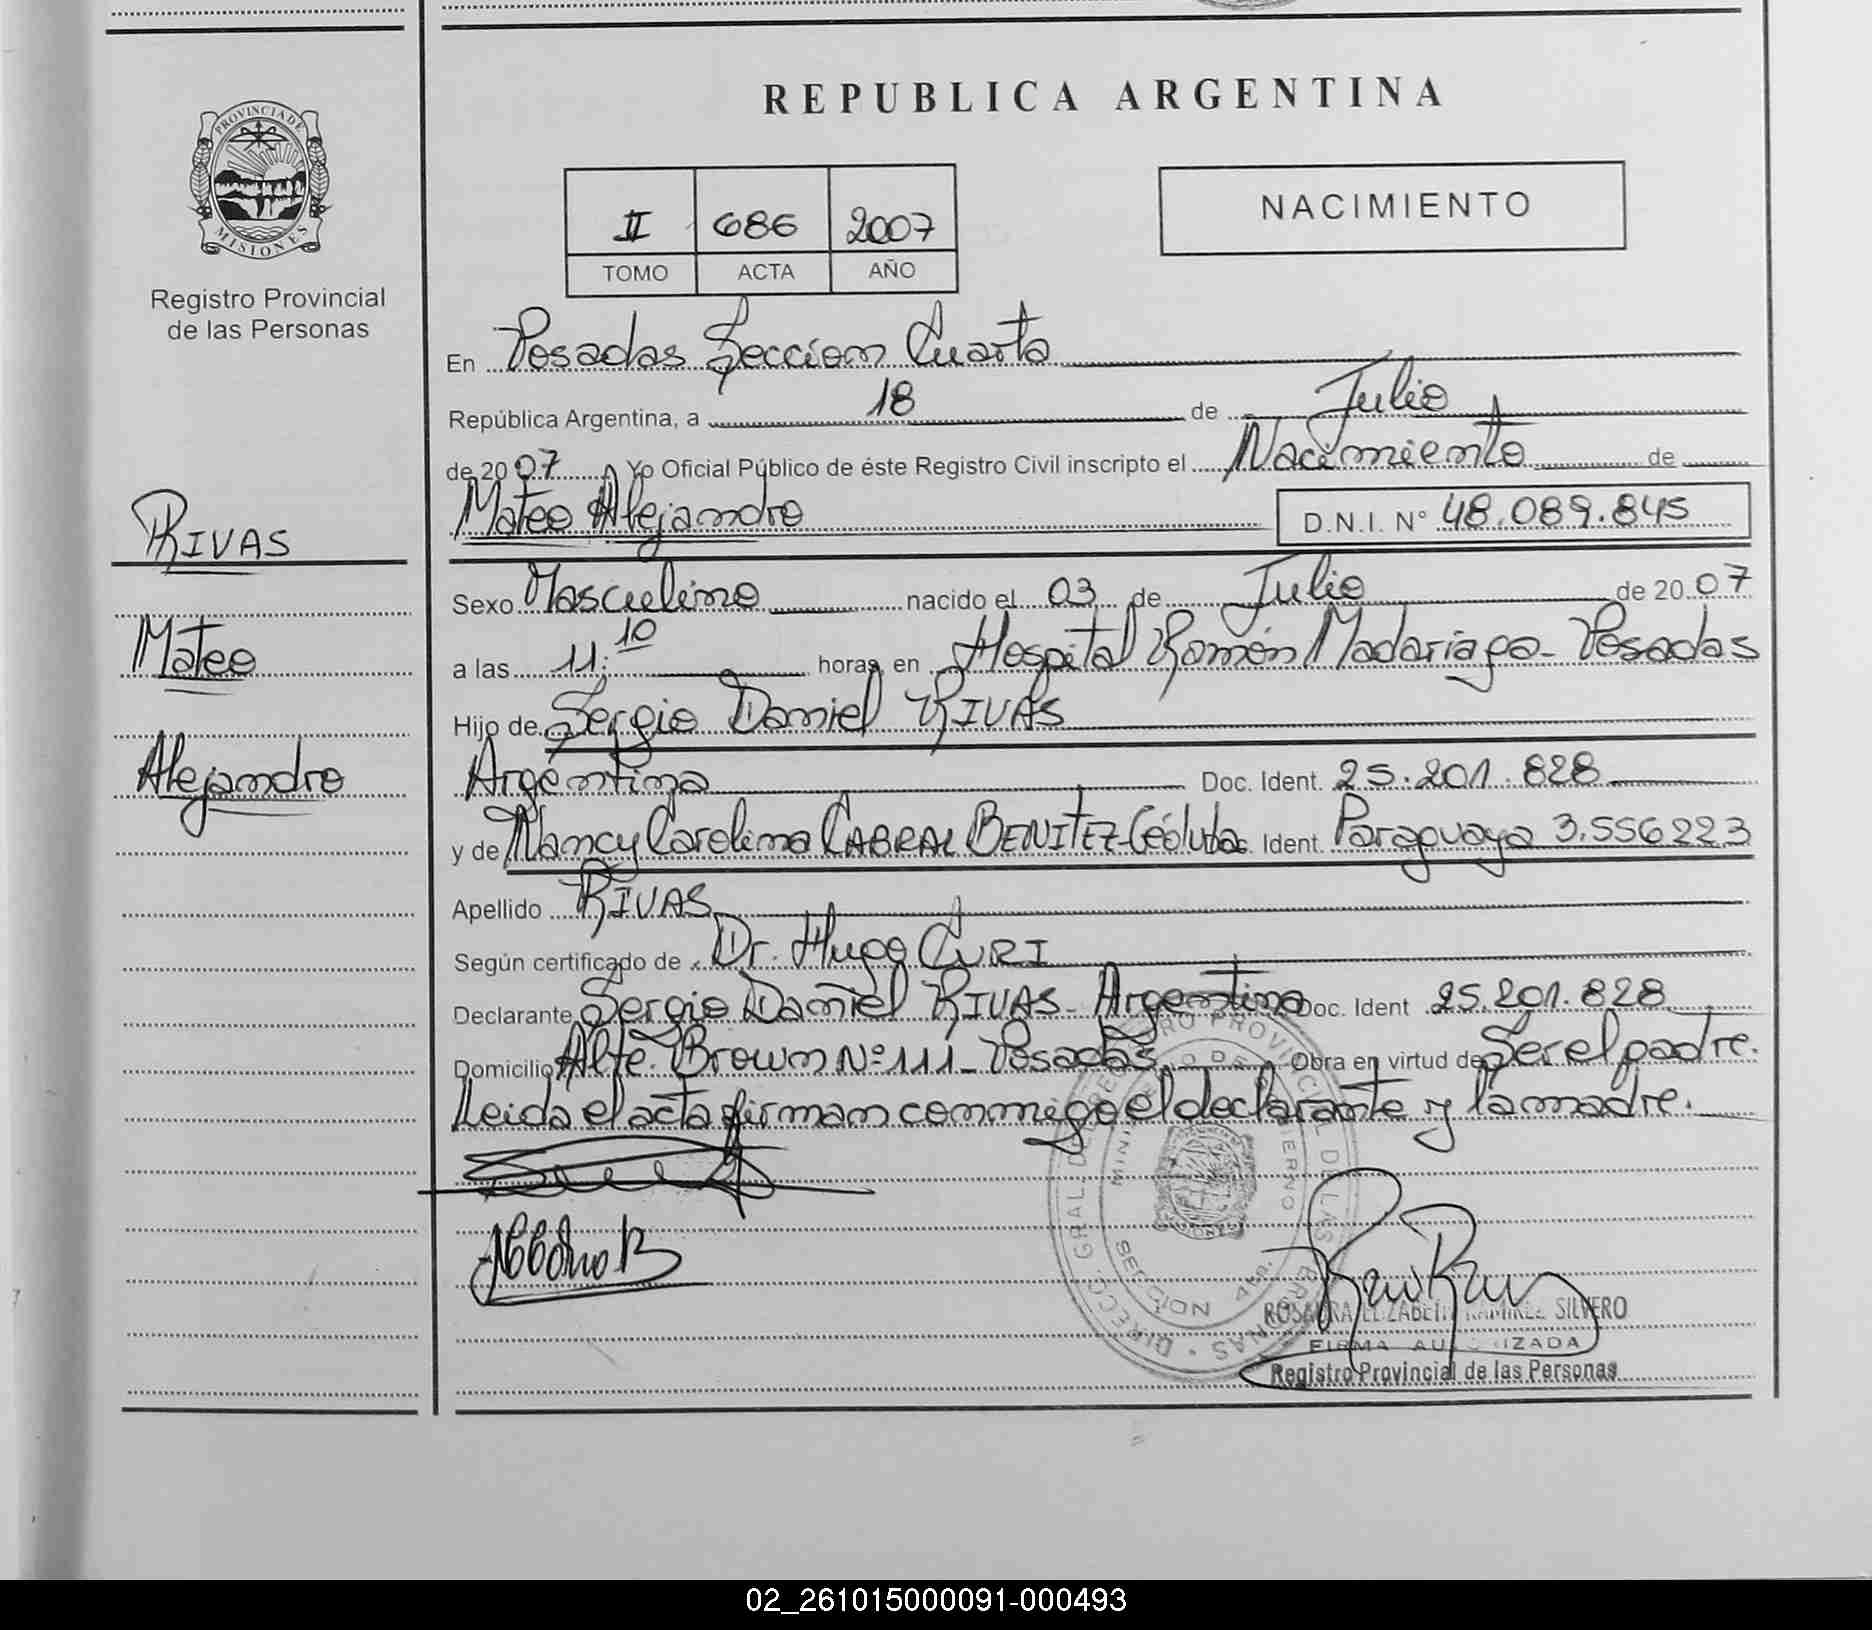 PROVINCIA DE
MISIONES
Registro Provincial
de las Personas
RIVAS
Mateo
Alejandro
REPUBLICA ARGENTINA
II 686 2007
TOMO ACTA AÑO
NACIMIENTO
En Posadas Seccion Cuarta
República Argentina, a 18 de Julio
de 2007 Yo Oficial Público de éste Registro Civil inscripto el Nacimiento de
Mateo Alejandro D.N.I. N° 48.089.845
Sexo Masculino nacido el 03 de Julio de 2007
a las 11:10 horas, en Hospital Ramón Madariaga - Posadas
Hijo de Sergio Daniel RIVAS
Argentina Doc. Ident. 25.201.828
y de Nancy Carolina CABRAL BENITEZ-Cédula Ident. Paraguaya 3.556223
Apellido RIVAS
Según certificado de Dr. Hugo CURI
Declarante Sergio Daniel RIVAS - Argentina Doc. Ident 25.201.828
Domicilio Alte. Brown Nº 111 - Posadas Obra en virtud de Ser el padre.
Leida el acta firman conmigo el declarante y la madre.
ROSAURA ELIZABETH RAMIREZ SILVERO
FIRMA AUTORIZADA
Registro Provincial de las Personas
02_261015000091-000493